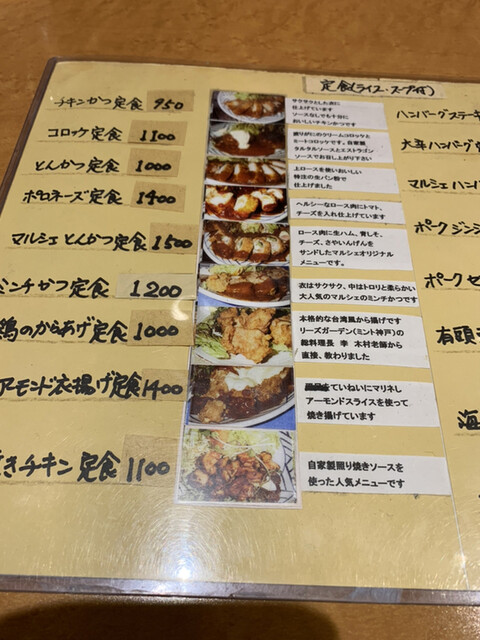 定食(ライス・スープ付)
チキンかつ定食 950
サクサクとした衣に
仕上げています
ソースなしでも十分に
おいしいチキンかつです
コロッケ定食 1100
盛りがにのクリームコロッケと
ミートコロッケです。自家製
タルタルソースとエストラゴン
ソースでお召し上がり下さい
とんかつ定食 1000
上ロースを使いおいしい
特注の生パン粉で
仕上げました
ボロネーズ定食 1400
ヘルシーなロース肉にトマト、
チーズを入れ仕上げています
マルシェとんかつ定食 1500
ロース肉に生ハム、青しそ、
チーズ、さやいんげんを
サンドしたマルシェオリジナル
メニューです。
ミンチかつ定食 1200
衣はサクサク、中はトロリと柔らかい
大人気のマルシェのミンチかつです
鶏のからあげ定食 1000
本格的な台湾風から揚げです
リーズガーデン(ミント神戸)の
総料理長 李 木村老師から
直接、教わりました
アーモンド衣揚げ定食 1400
ていねいにマリネし
アーモンドスライスを使って
焼き揚げています
きチキン定食 1100
自家製照り焼きソースを
使った人気メニューです
ハンバーグステーキ
大葉ハンバーグ
マルシェハンバ
ポークジンジ
ポークセ
有頭
海